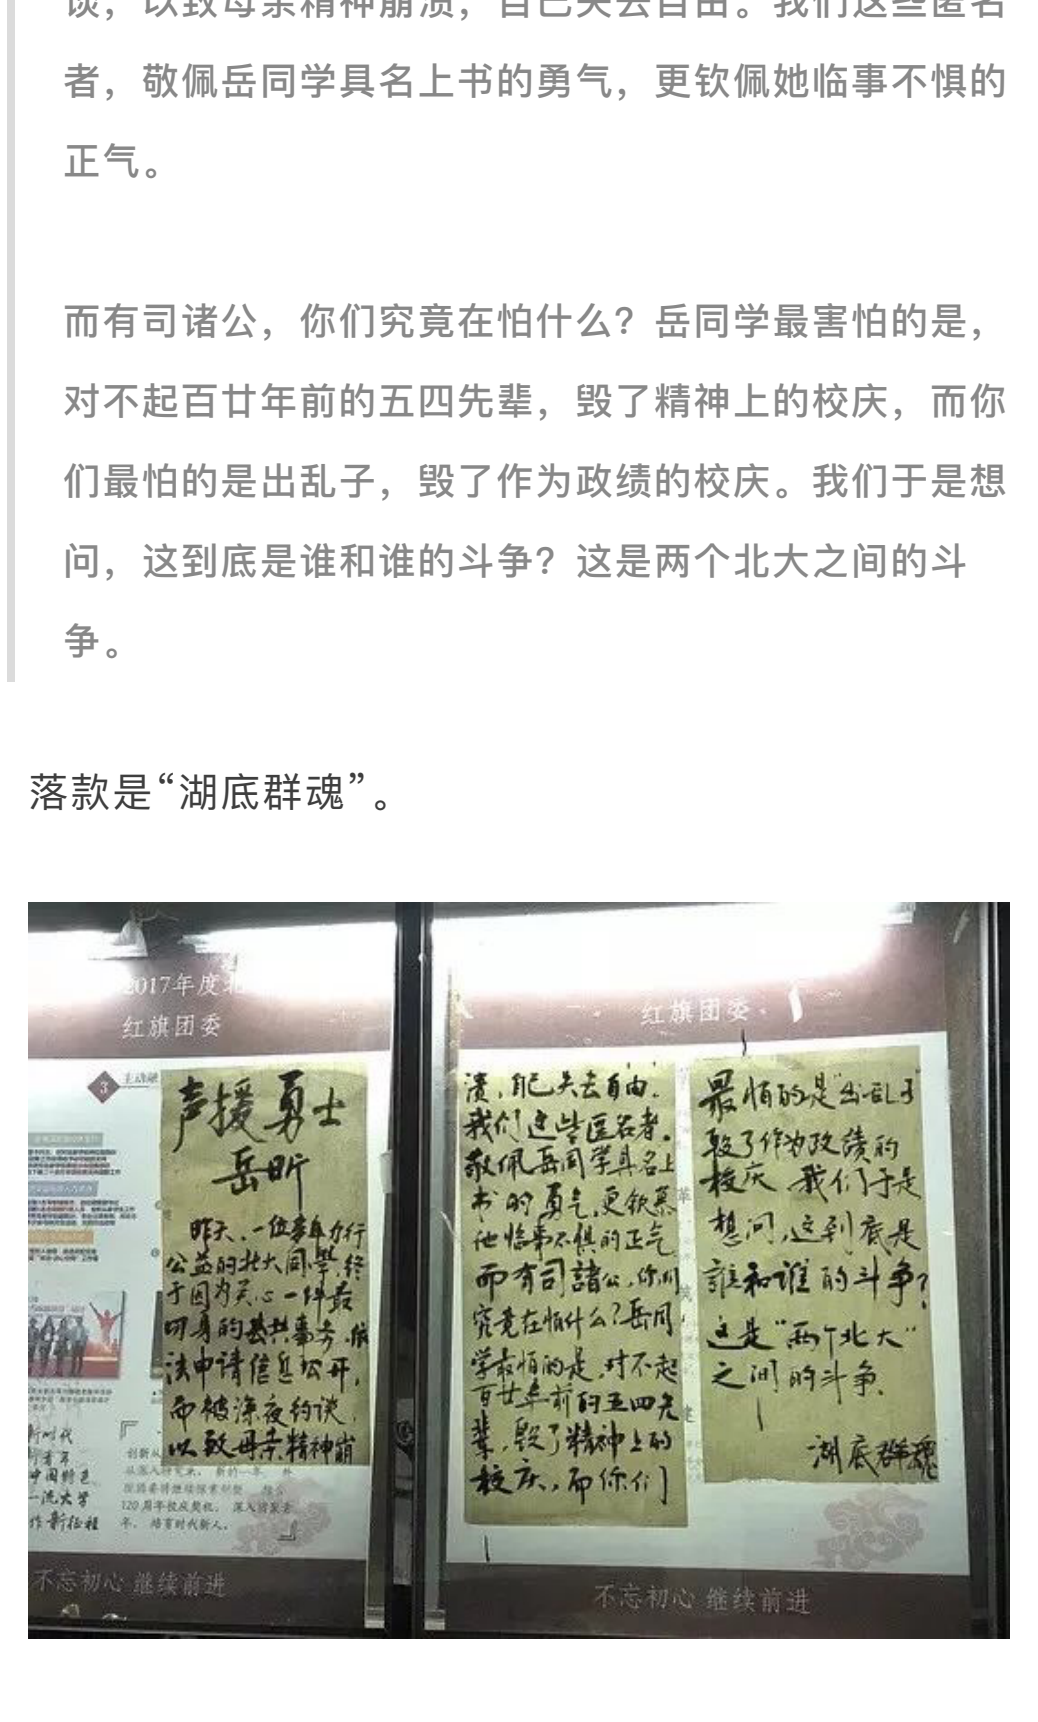 谈，以致母亲精神崩溃，自己失去自由。我们这些匿名
者，敬佩岳同学具名上书的勇气，更钦佩她临事不惧的
正气。
而有司诸公，你们究竟在怕什么？岳同学最害怕的是，
对不起百廿年前的五四先辈，毁了精神上的校庆，而你
们最怕的是出乱子，毁了作为政绩的校庆。我们于是想
问，这到底是谁和谁的斗争？这是两个北大之间的斗
争。
落款是“湖底群魂”。
2017年度北
红旗团委
3
主动融
声援勇士
岳昕
昨天，一位多年力行
公益的北大同学，终
于因为关心一件最
切身的公共事务，依
法申请信息公开，
而被深夜约谈，
以致母亲精神崩
新时代
新青年
中国特色
一流大学
作新征程
120周年校庆契机，深入
年，培育时代新人。
不忘初心 继续前进
红旗团委
溃，自己失去自由。
我们这些匿名者，
敬佩岳同学具名上
书的勇气，更钦慕
他临事不惧的正气
而有司諸公，你们
究竟在怕什么？岳同
学最怕的是，对不起
百廿年前的五四先
辈，毁了精神上的
校庆，而你们
最怕的是“出乱子”
毁了作为政绩的
校庆 我们于是
想问，这到底是
誰和谁的斗争？
这是“两个北大”
之间的斗争．
湖底群魂
不忘初心 继续前进